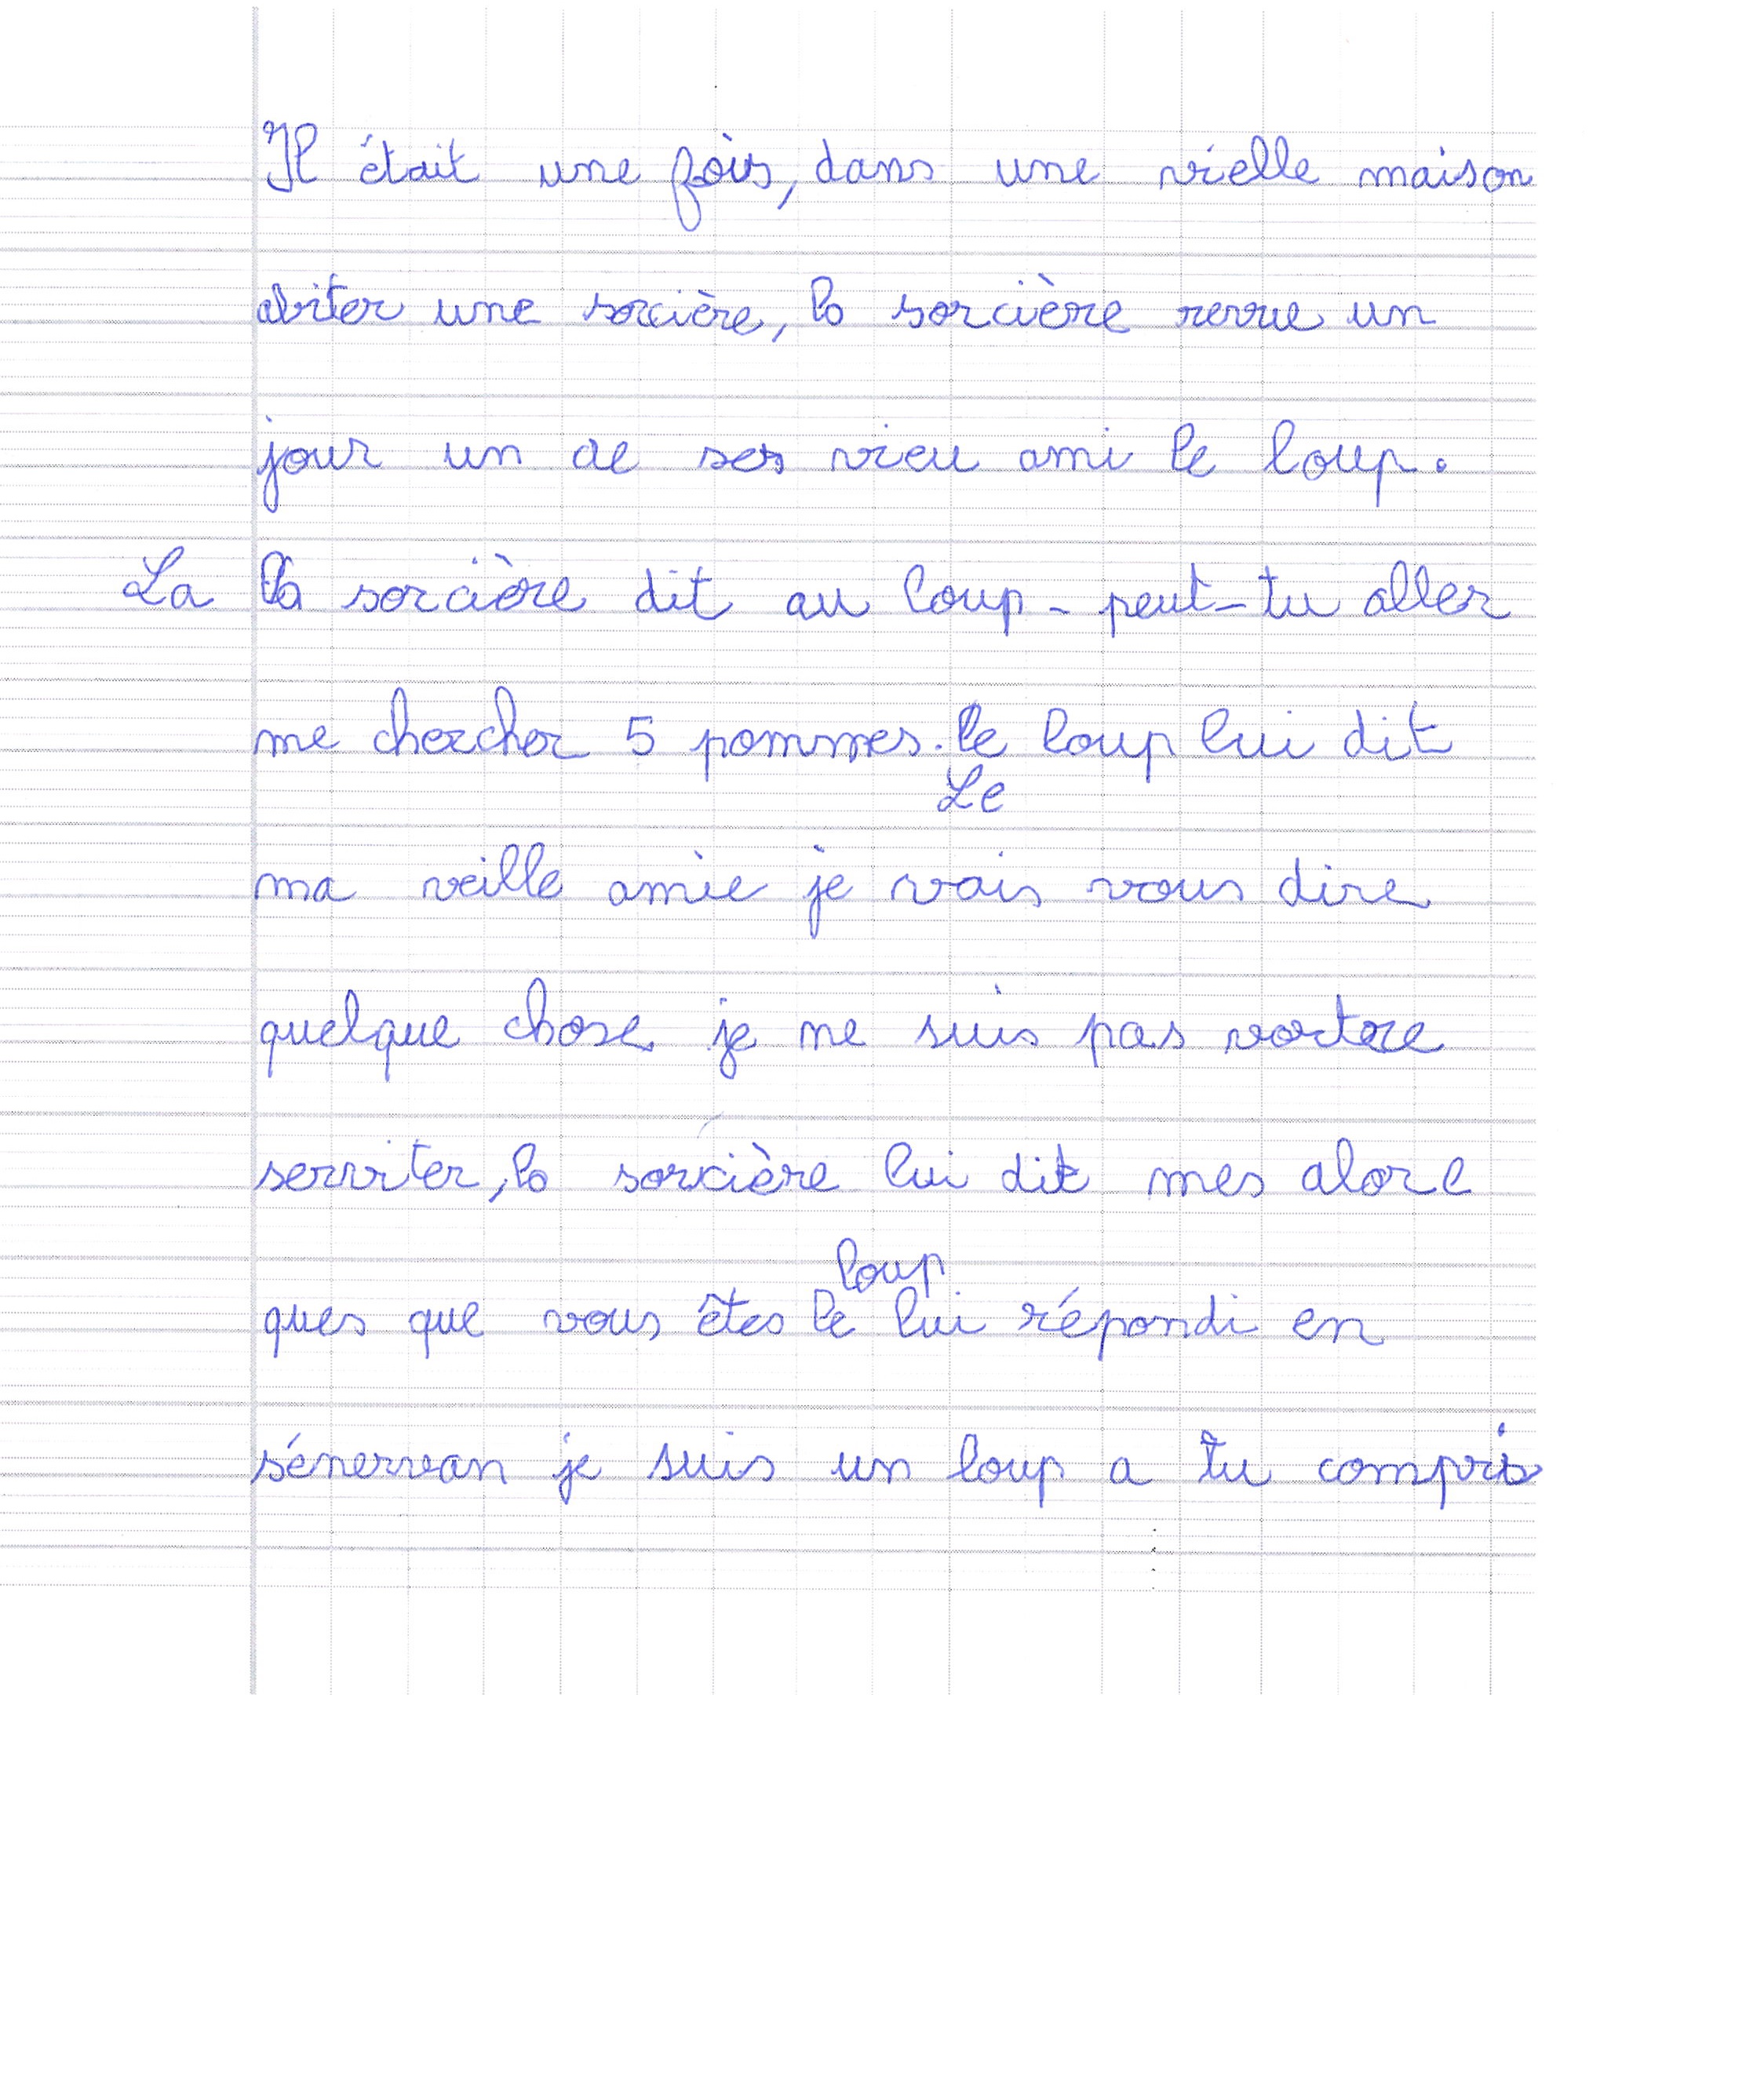 Il était une fois, dans une vielle maison
abiter une sorcière, la sorcière revue un
jour un de ses vieu ami le loup.
La la sorcière dit au loup - peut-tu aller
me chercher 5 pommes. le loup lui dit
Le
ma veille amie je vais vous dire
quelque chose je ne suis pas vortre
serviter, la sorcière lui dit mes alore
loup
ques que vous êtes le lui répondi en
sénervan je suis un loup a tu compris